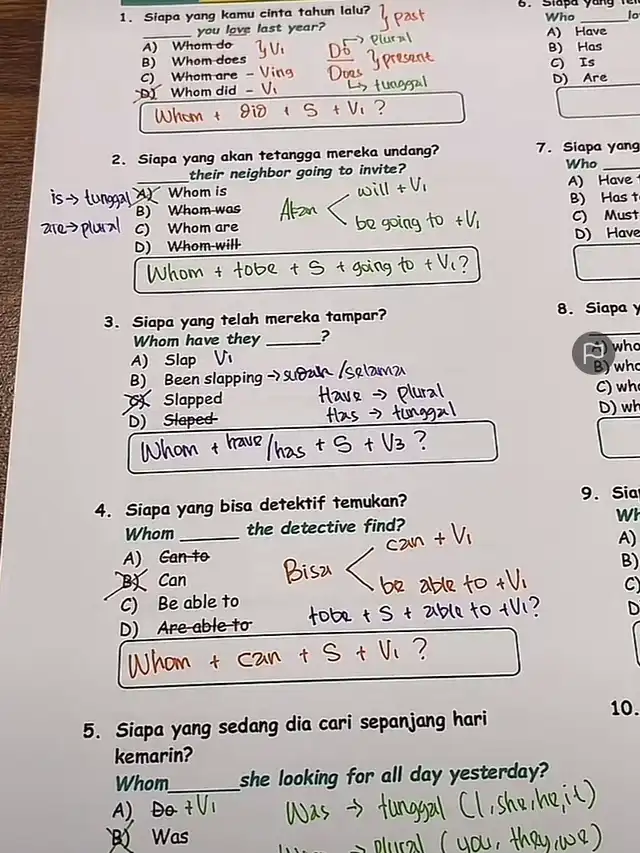 1. Siapa yang kamu cinta tahun lalu? } past
______ you love last year?
A) Whom do } V1
B) Whom does
C) Whom are - Ving
D) Whom did - V1
Do → plural
Does } present
↳ tunggal
Whom + did + S + V1 ?
2. Siapa yang akan tetangga mereka undang?
______ their neighbor going to invite?
is → tunggal A) Whom is
B) Whom was
are → plural C) Whom are
D) Whom will
Akan < will + V1
be going to + V1
Whom + tobe + S + going to + V1?
3. Siapa yang telah mereka tampar?
Whom have they ______?
A) Slap V1
B) Been slapping → sudah / selama
C) Slapped
D) Slaped
Have → plural
Has → tunggal
Whom + have/has + S + V3 ?
4. Siapa yang bisa detektif temukan?
Whom ______ the detective find?
A) Can to
B) Can
C) Be able to
D) Are able to
Bisa < can + V1
be able to + V1
tobe + S + able to + V1?
Whom + can + S + V1 ?
5. Siapa yang sedang dia cari sepanjang hari
kemarin?
Whom______she looking for all day yesterday?
A) Do + V1
B) Was
Was → tunggal (I, she, he, it)
→ plural (you, they, we)
6. Siapa yang
Who ______
A) Have
B) Has
C) Is
D) Are
7. Siapa yang
Who
A) Have
B) Has
C) Must
D) Have
8. Siapa
A) who
B)
C)
D)
9.
A)
B)
C)
D
10.